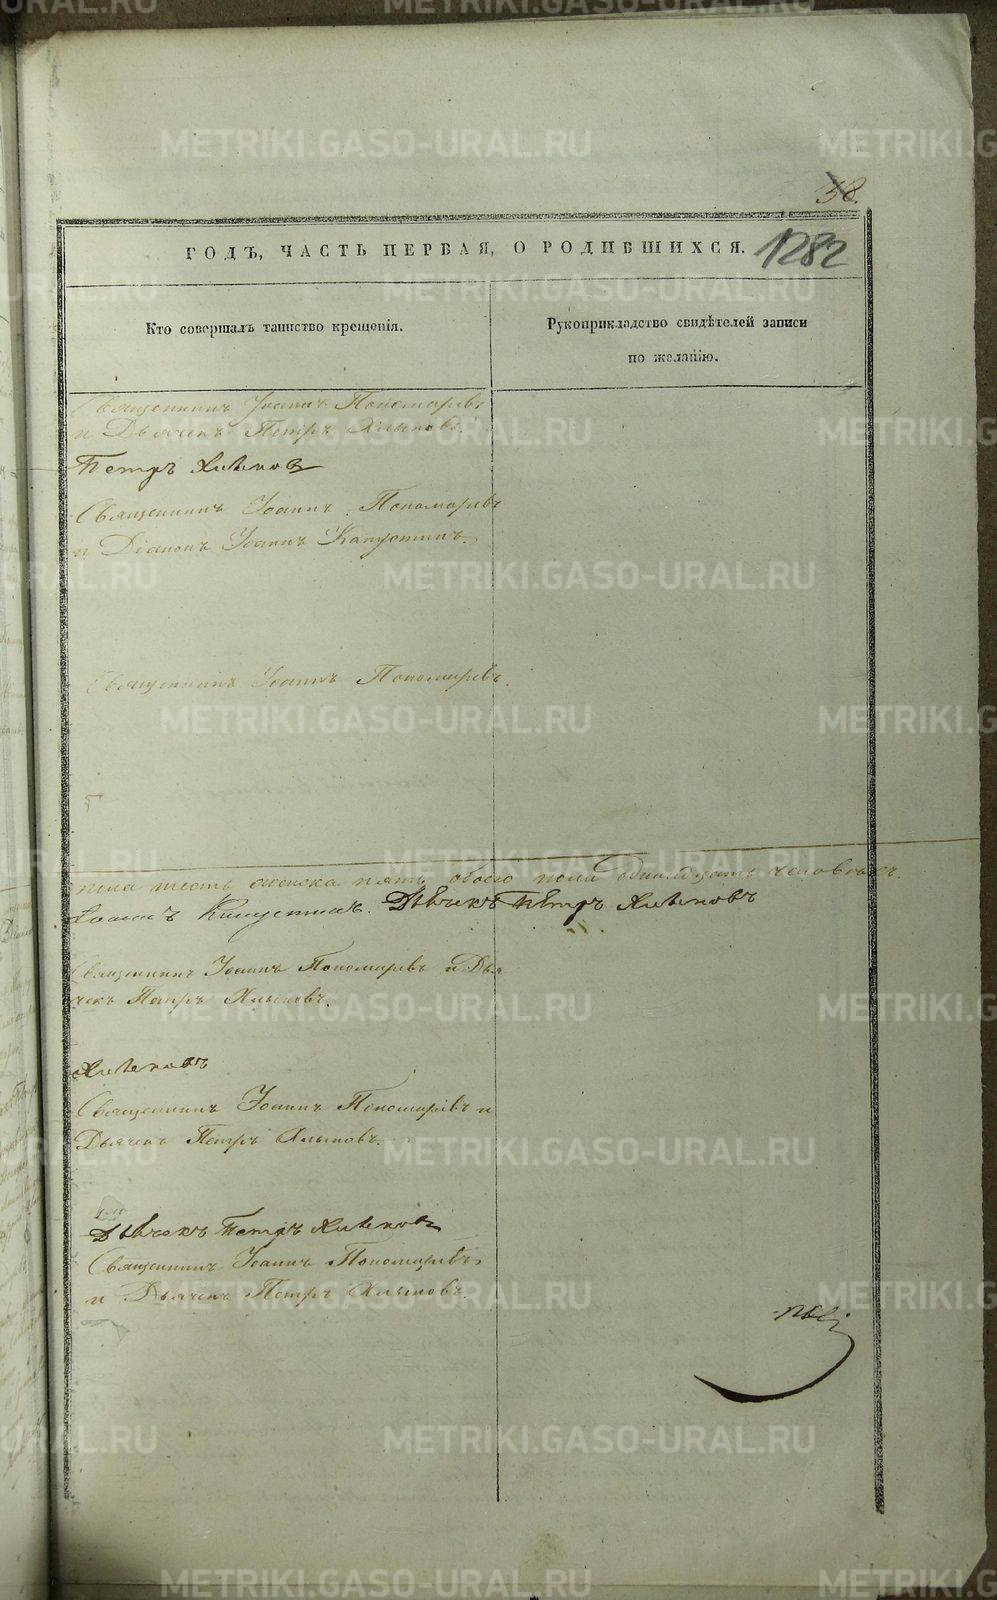 58.
ГОДЪ, ЧАСТЬ ПЕРВАЯ, О РОДИВШИХСЯ. 1282
Кто совершалъ таинство крещенія.
Рукоприкладство свидѣтелей записи
по желанію.
Священникъ Іоаннъ Пономаревъ
и Дьячекъ Петръ Хлыновъ.
Петръ Хлыновъ
Священникъ Іоаннъ Пономаревъ
и Діаконъ Іоаннъ Капустинъ.
Священникъ Іоаннъ Пономаревъ.
пола шесть женска пять, обоего пола одиннадцать человѣкъ.
Іоаннъ Капустинъ. Дьячекъ Петръ Хлыновъ
Священникъ Іоаннъ Пономаревъ и Дья
чекъ Петръ Хлыновъ.
Хлыновъ
Священникъ Іоаннъ Пономаревъ и
Дьячекъ Петръ Хлыновъ.
Дьячекъ Петръ Хлыновъ
Священникъ Іоаннъ Пономаревъ
и Дьячекъ Петръ Хлыновъ.
METRIKI.GASO-URAL.RU